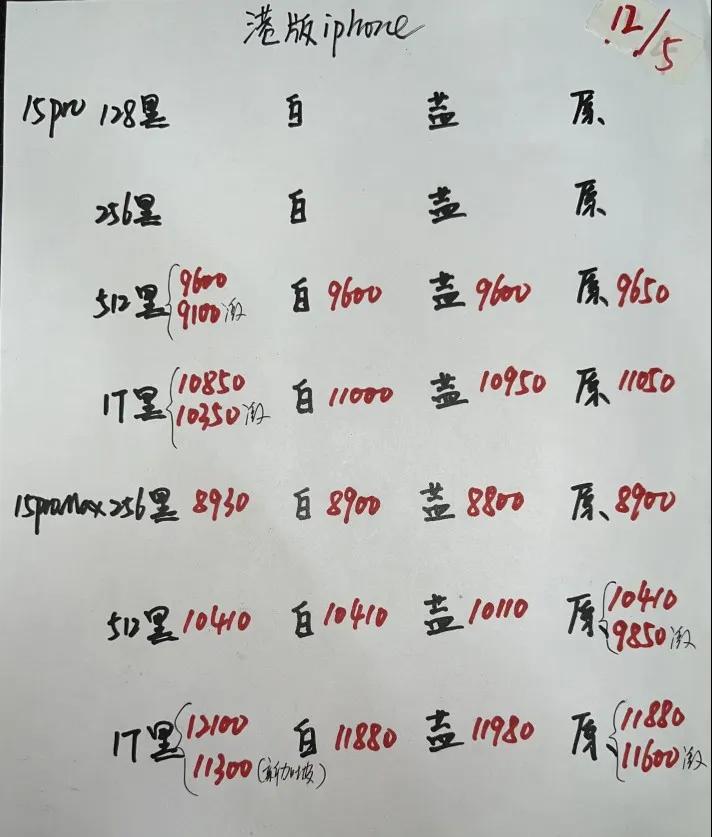 港版iphone
12/5
15pro 128黑 白 蓝 原
256黑 白 蓝 原
512黑 9600 9100激 白 9600 蓝 9600 原 9650
1T黑 10850 10350激 白 11000 蓝 10950 原 11050
15proMax 256黑 8930 白 8900 蓝 8800 原 8900
512黑 10410 白 10410 蓝 10110 原 10410 9850激
1T黑 12100 11300(新加坡) 白 11880 蓝 11980 原 11880 11600激